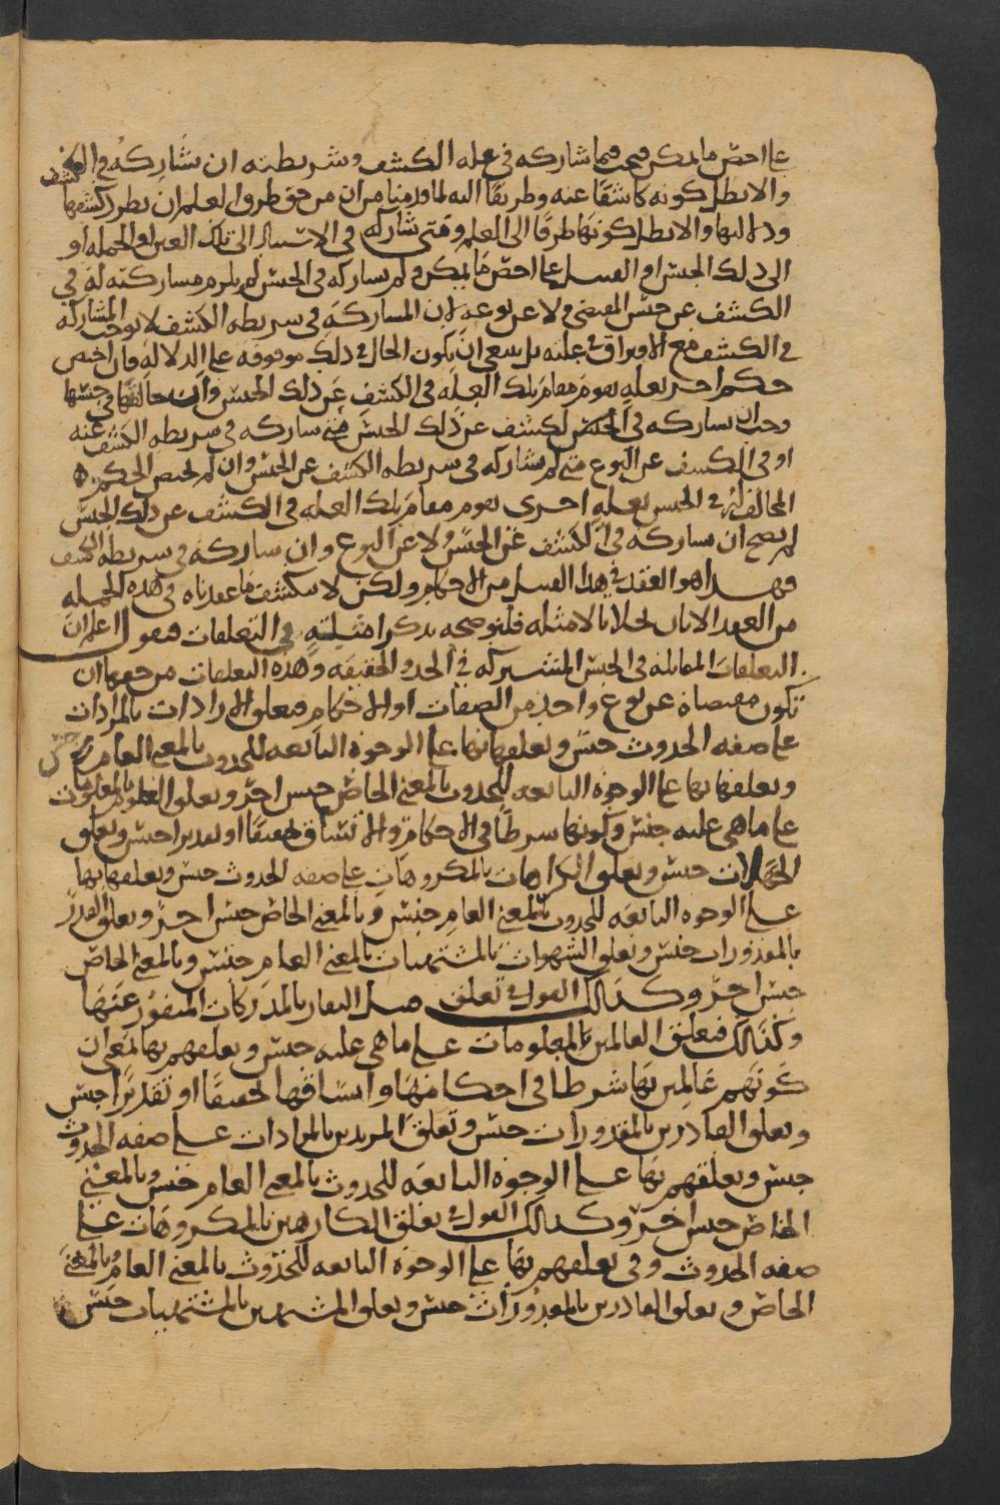 على اخص ما يمكن فيه فما شاركه في علة الكشف وشريطته ان شاركه في الكشف
والا بطل كونه كاشفا عنه وطريقا اليه لما قدمنا من ان من حق طرق العلم ان يطرد كشفها
ودلالتها والا بطل كونها طرقا الى العلم ومتى شاركه في الانتساب الى تلك العين او الجملة او
الى ذلك الجنس او القبيل على اخص ما يمكن ولم يشاركه في الجنس لم يلزم مشاركته له في
الكشف عن جنس المقتضي ولا عن نوعه لان المشاركة في شريطة الكشف لا توجب المشاركة
في الكشف مع الافتراق في علته بل ينبغي ان يكون الحال في ذلك موقوفة على الدلالة فان اختص
حكم اخر بعلة تقوم مقام تلك العلة في الكشف عن ذلك الجنس وان خالفها في جنسها
وجب ان يشاركه في الجنس لكشف عن ذلك الجنس متى شاركه في شريطة الكشف عنه
او في الكشف عن النوع متى لم يشاركه في شريطة الكشف عن الجنس وان لم يختص الحكم
المخالف له في الجنس بعلة اخرى تقوم مقام تلك العلة في الكشف عن ذلك الجنس
لم يصح ان يشاركه في الكشف عن الجنس ولا عن النوع وان شاركه في شريطة الكشف
فهذا هو العقد في هذا القبيل من الاحكام ولكن لا ينكشف ما عقدناه في هذه الجملة
من العقد الا بان بجلايا الامثلة فلنوضحه بذكر امثلته في التعلقات فنقول اعلم ان
التعلقات المتماثلة في الجنس المشتركة في الحد والحقيقة وهذه التعلقات من حقها ان
تكون مقتضاة عن نوع واحد من الصفات او الاحكام فتعلق الارادات بالمرادات
على صفة الحدوث جنس وتعلقها بها على الوجوه التابعة للحدوث بالمعنى العام جنس
وتعلقها بها على الوجوه التابعة للحدوث بالمعنى الخاص جنس اخر وتعلق العلوم بالمعلومات
على ما هي عليه جنس وكونها شرطا في الاحكام والاتساق تحقيقا او تقديرا جنس وتعلق
الجهالات جنس وتعلق الكراهات بالمكروهات على صفة الحدوث جنس وتعلقها بها
على الوجوه التابعة للحدوث بالمعنى العام جنس وبالمعنى الخاص جنس اخر وتعلق القدر
بالمقدورات جنس وتعلق الشهوات بالمشتهيات بالمعنى العام جنس وبالمعنى الخاص
جنس اخر وكذلك القول في تعلق النفار بالمدركات المنفور عنها
وكذلك فتعلق العالمين بالمعلومات على ما هي عليه جنس وتعلقهم بها بمعنى ان
كونهم عالمين بها شرطا في احكامها واتساقها تحقيقا او تقديرا جنس
وتعلق القادرين بالمقدورات جنس وتعلق المريدين بالمرادات على صفة الحدوث
جنس وتعلقهم بها على الوجوه التابعة للحدوث بالمعنى العام جنس وبالمعنى
الخاص جنس اخر وكذلك القول في تعلق الكارهين بالمكروهات على
صفة الحدوث وفي تعلقهم بها على الوجوه التابعة للحدوث بالمعنى العام وبالمعنى
الخاص وتعلق القادرين بالمقدورات جنس وتعلق المشتهين بالمشتهيات جنس